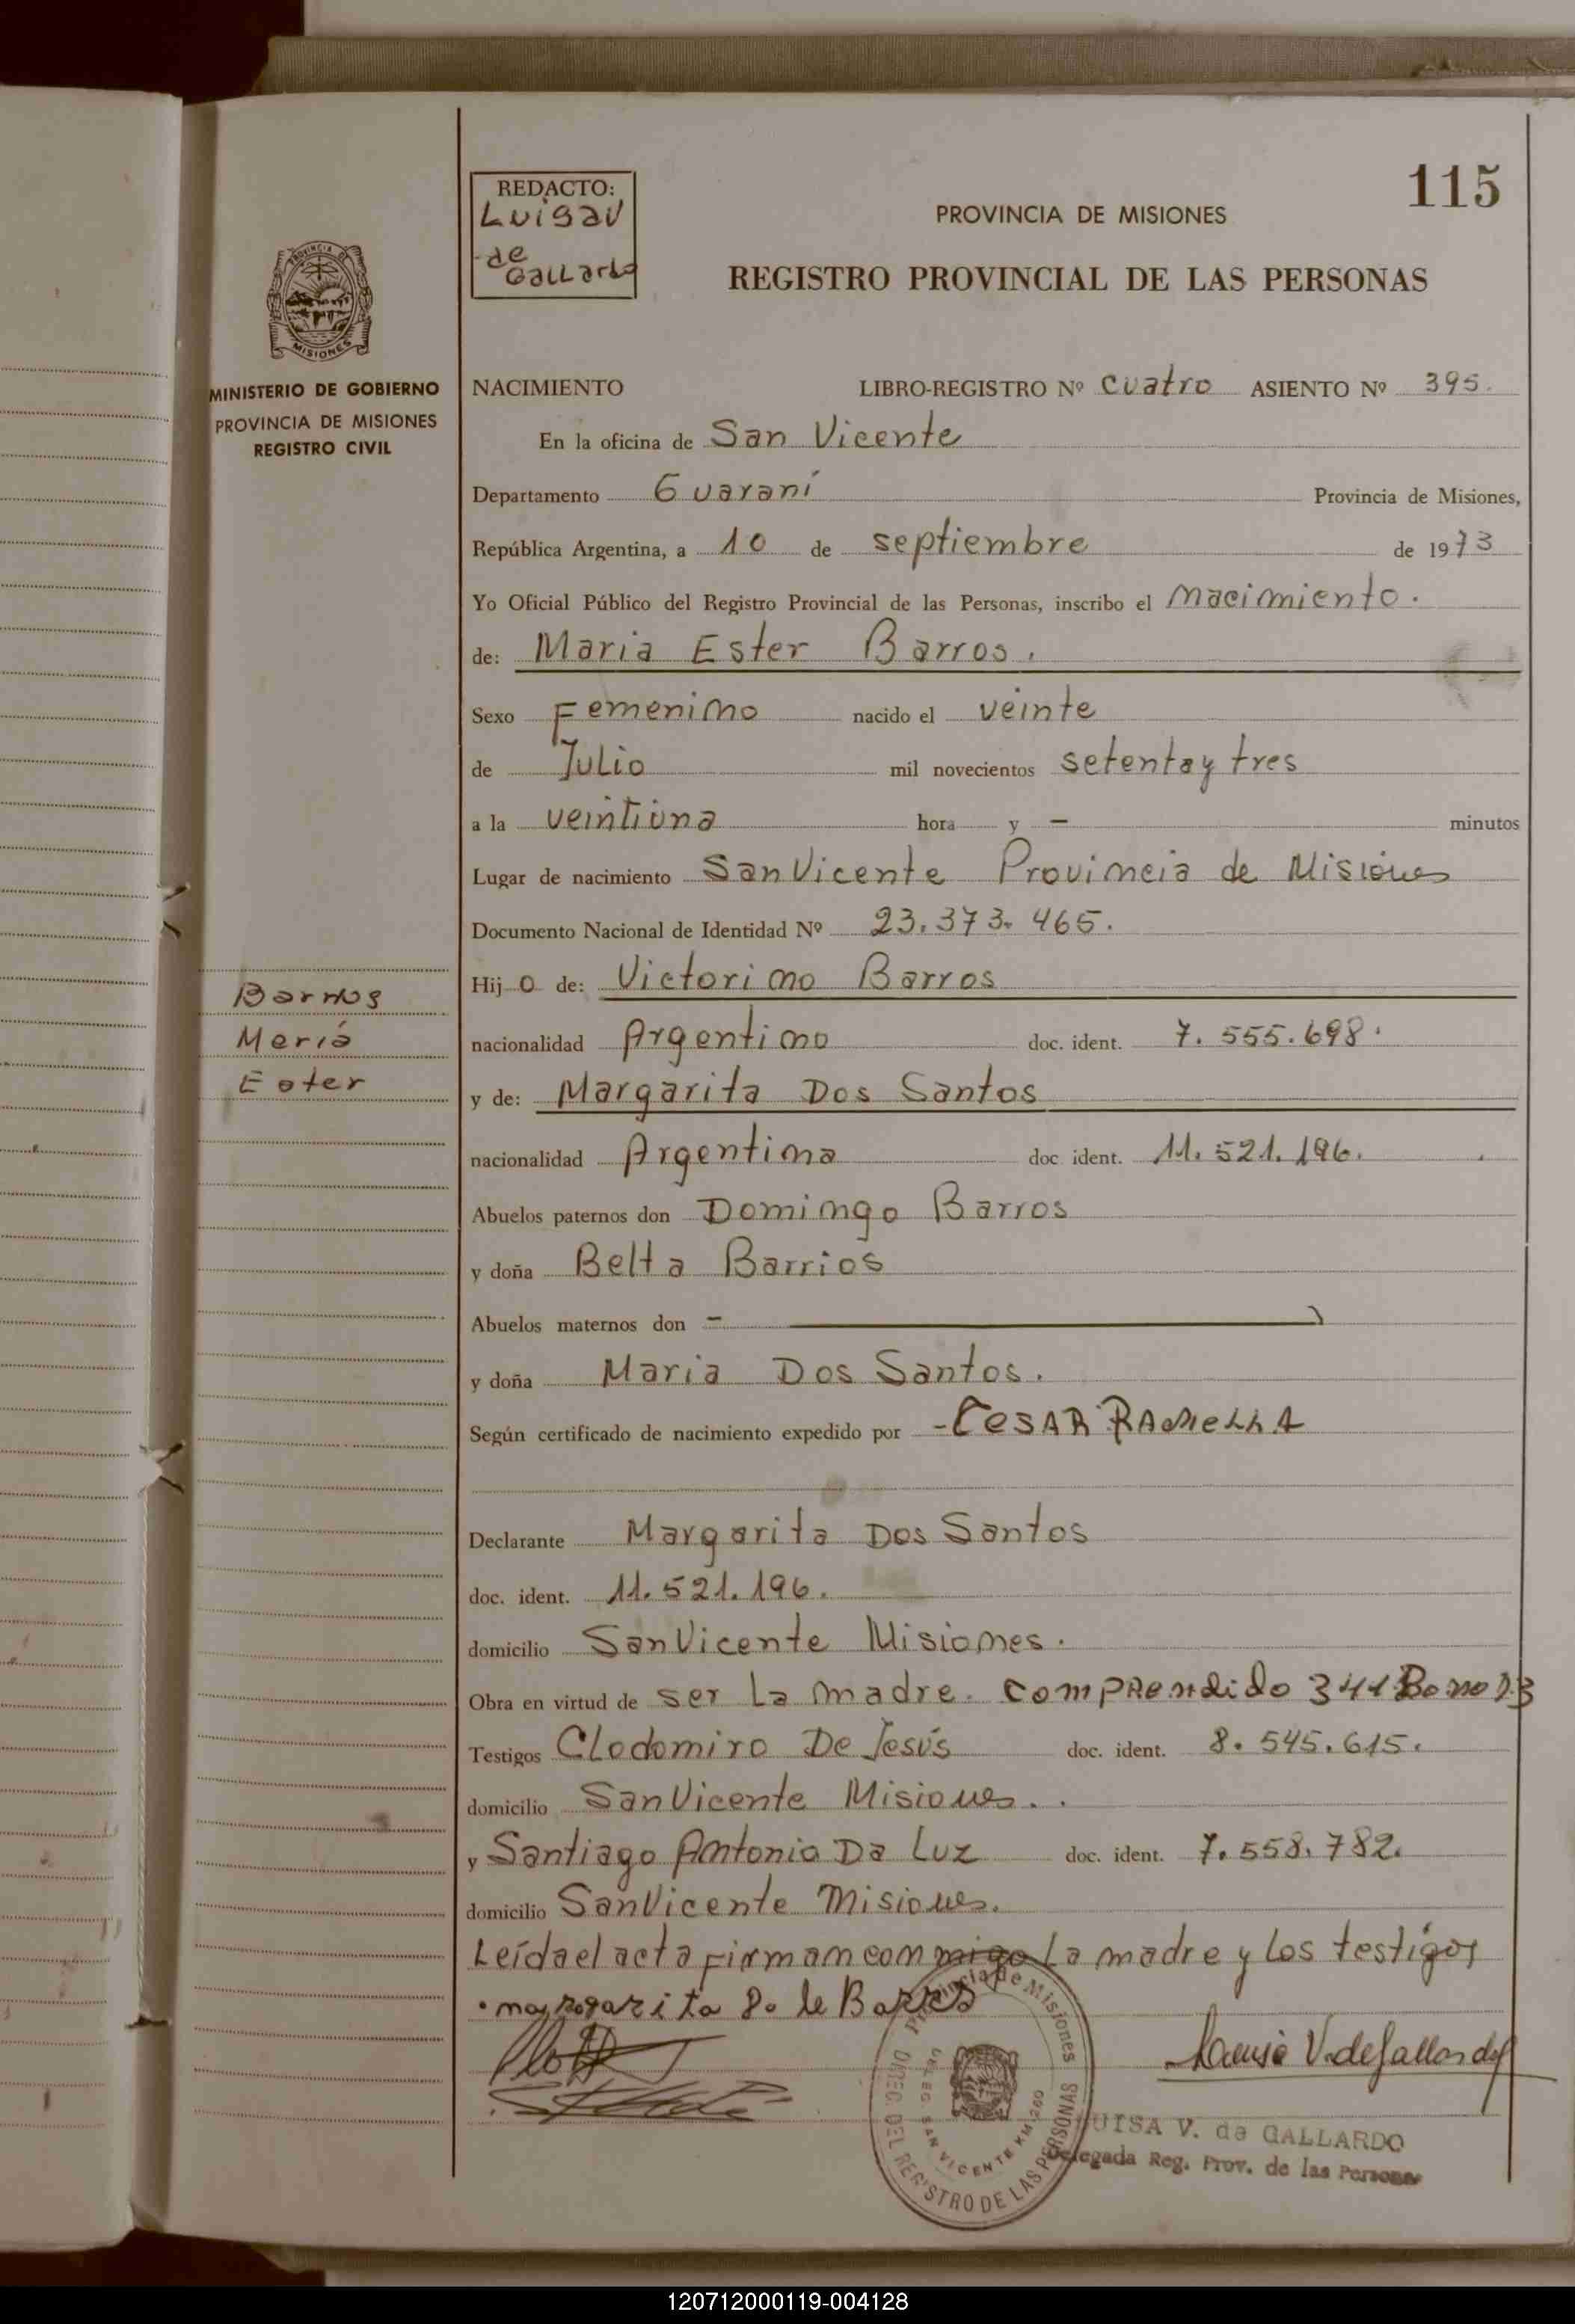 115
REDACTO:
Luisa V
de
Gallardo
PROVINCIA DE MISIONES
REGISTRO PROVINCIAL DE LAS PERSONAS
PROVINCIA DE
MISIONES
MINISTERIO DE GOBIERNO
PROVINCIA DE MISIONES
REGISTRO CIVIL
NACIMIENTO LIBRO-REGISTRO Nº cuatro ASIENTO Nº 395.
En la oficina de San Vicente
Departamento Guaraní Provincia de Misiones,
República Argentina, a 10 de septiembre de 1973
Yo Oficial Público del Registro Provincial de las Personas, inscribo el nacimiento.
de: Maria Ester Barros.
Sexo Femenino nacido el veinte
de Julio mil novecientos setenta y tres
a la veintiuna hora y – minutos
Lugar de nacimiento San Vicente Provincia de Misiones
Documento Nacional de Identidad Nº 23.373.465.
Hij o de: Victorino Barros
nacionalidad Argentino doc. ident. 7.555.698.
y de: Margarita Dos Santos
nacionalidad Argentina doc. ident. 11.521.196.
Abuelos paternos don Domingo Barros
y doña Belta Barrios
Abuelos maternos don –
y doña Maria Dos Santos.
Según certificado de nacimiento expedido por - CESAR
Declarante Margarita Dos Santos
doc. ident. 11.521.196.
domicilio San Vicente Misiones.
Obra en virtud de ser la madre. comprendido
Testigos Clodomiro De Jesús doc. ident. 8.545.615.
domicilio San Vicente Misiones.
y Santiago Antonio Da Luz doc. ident. 7.558.782.
domicilio San Vicente Misiones.
Leída el acta firman conmigo la madre y los testigos
Barros
Meriá
Ester
Provincia de Misiones
DIREC. DEL REGISTRO DE LAS PERSONAS
DELEG. SAN VICENTE KM. 260
Luisa V. de Gallardo
LUISA V. de GALLARDO
Delegada Reg. Prov. de las Personas
120712000119-004128